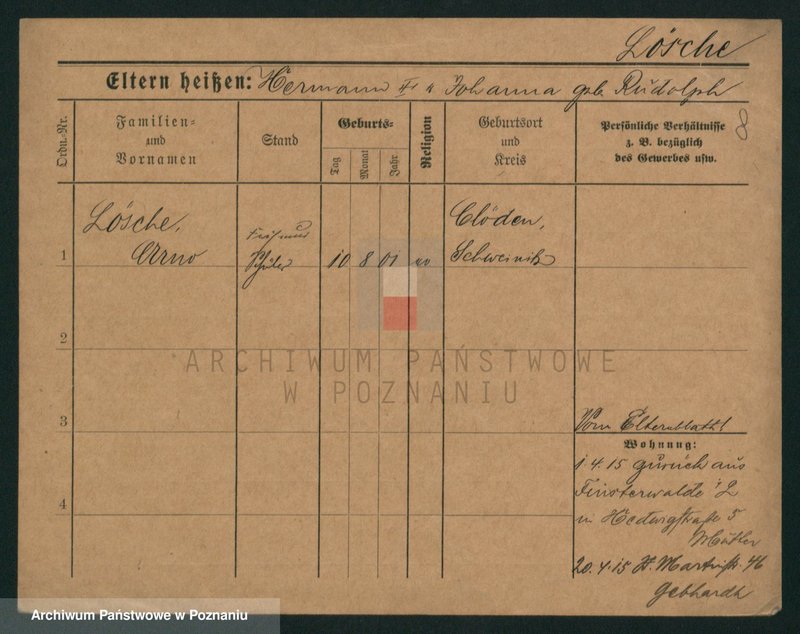 Lösche
Eltern heißen: Hermann u Johanna geb. Rudolph
8
Ordn.-Nr.
Familien= und Vornamen
Stand
Geburts=
Tag
Monat
Jahr
Religion
Geburtsort und Kreis
Persönliche Verhältnisse
z. B. bezüglich
des Gewerbes usw.
1
Lösche,
Arno
Schüler
10 8 01
Clöden,
Schweinitz
2
ARCHIWUM PAŃSTWOWE
W POZNANIU
3
Vom Elternblatt!
Wohnung:
1 4.15 zurück aus
Finsterwalde
in Hedwigstraße 5
4
20.4.15 St. Martinstr. 46
Gebhardt
Archiwum Państwowe w Poznaniu